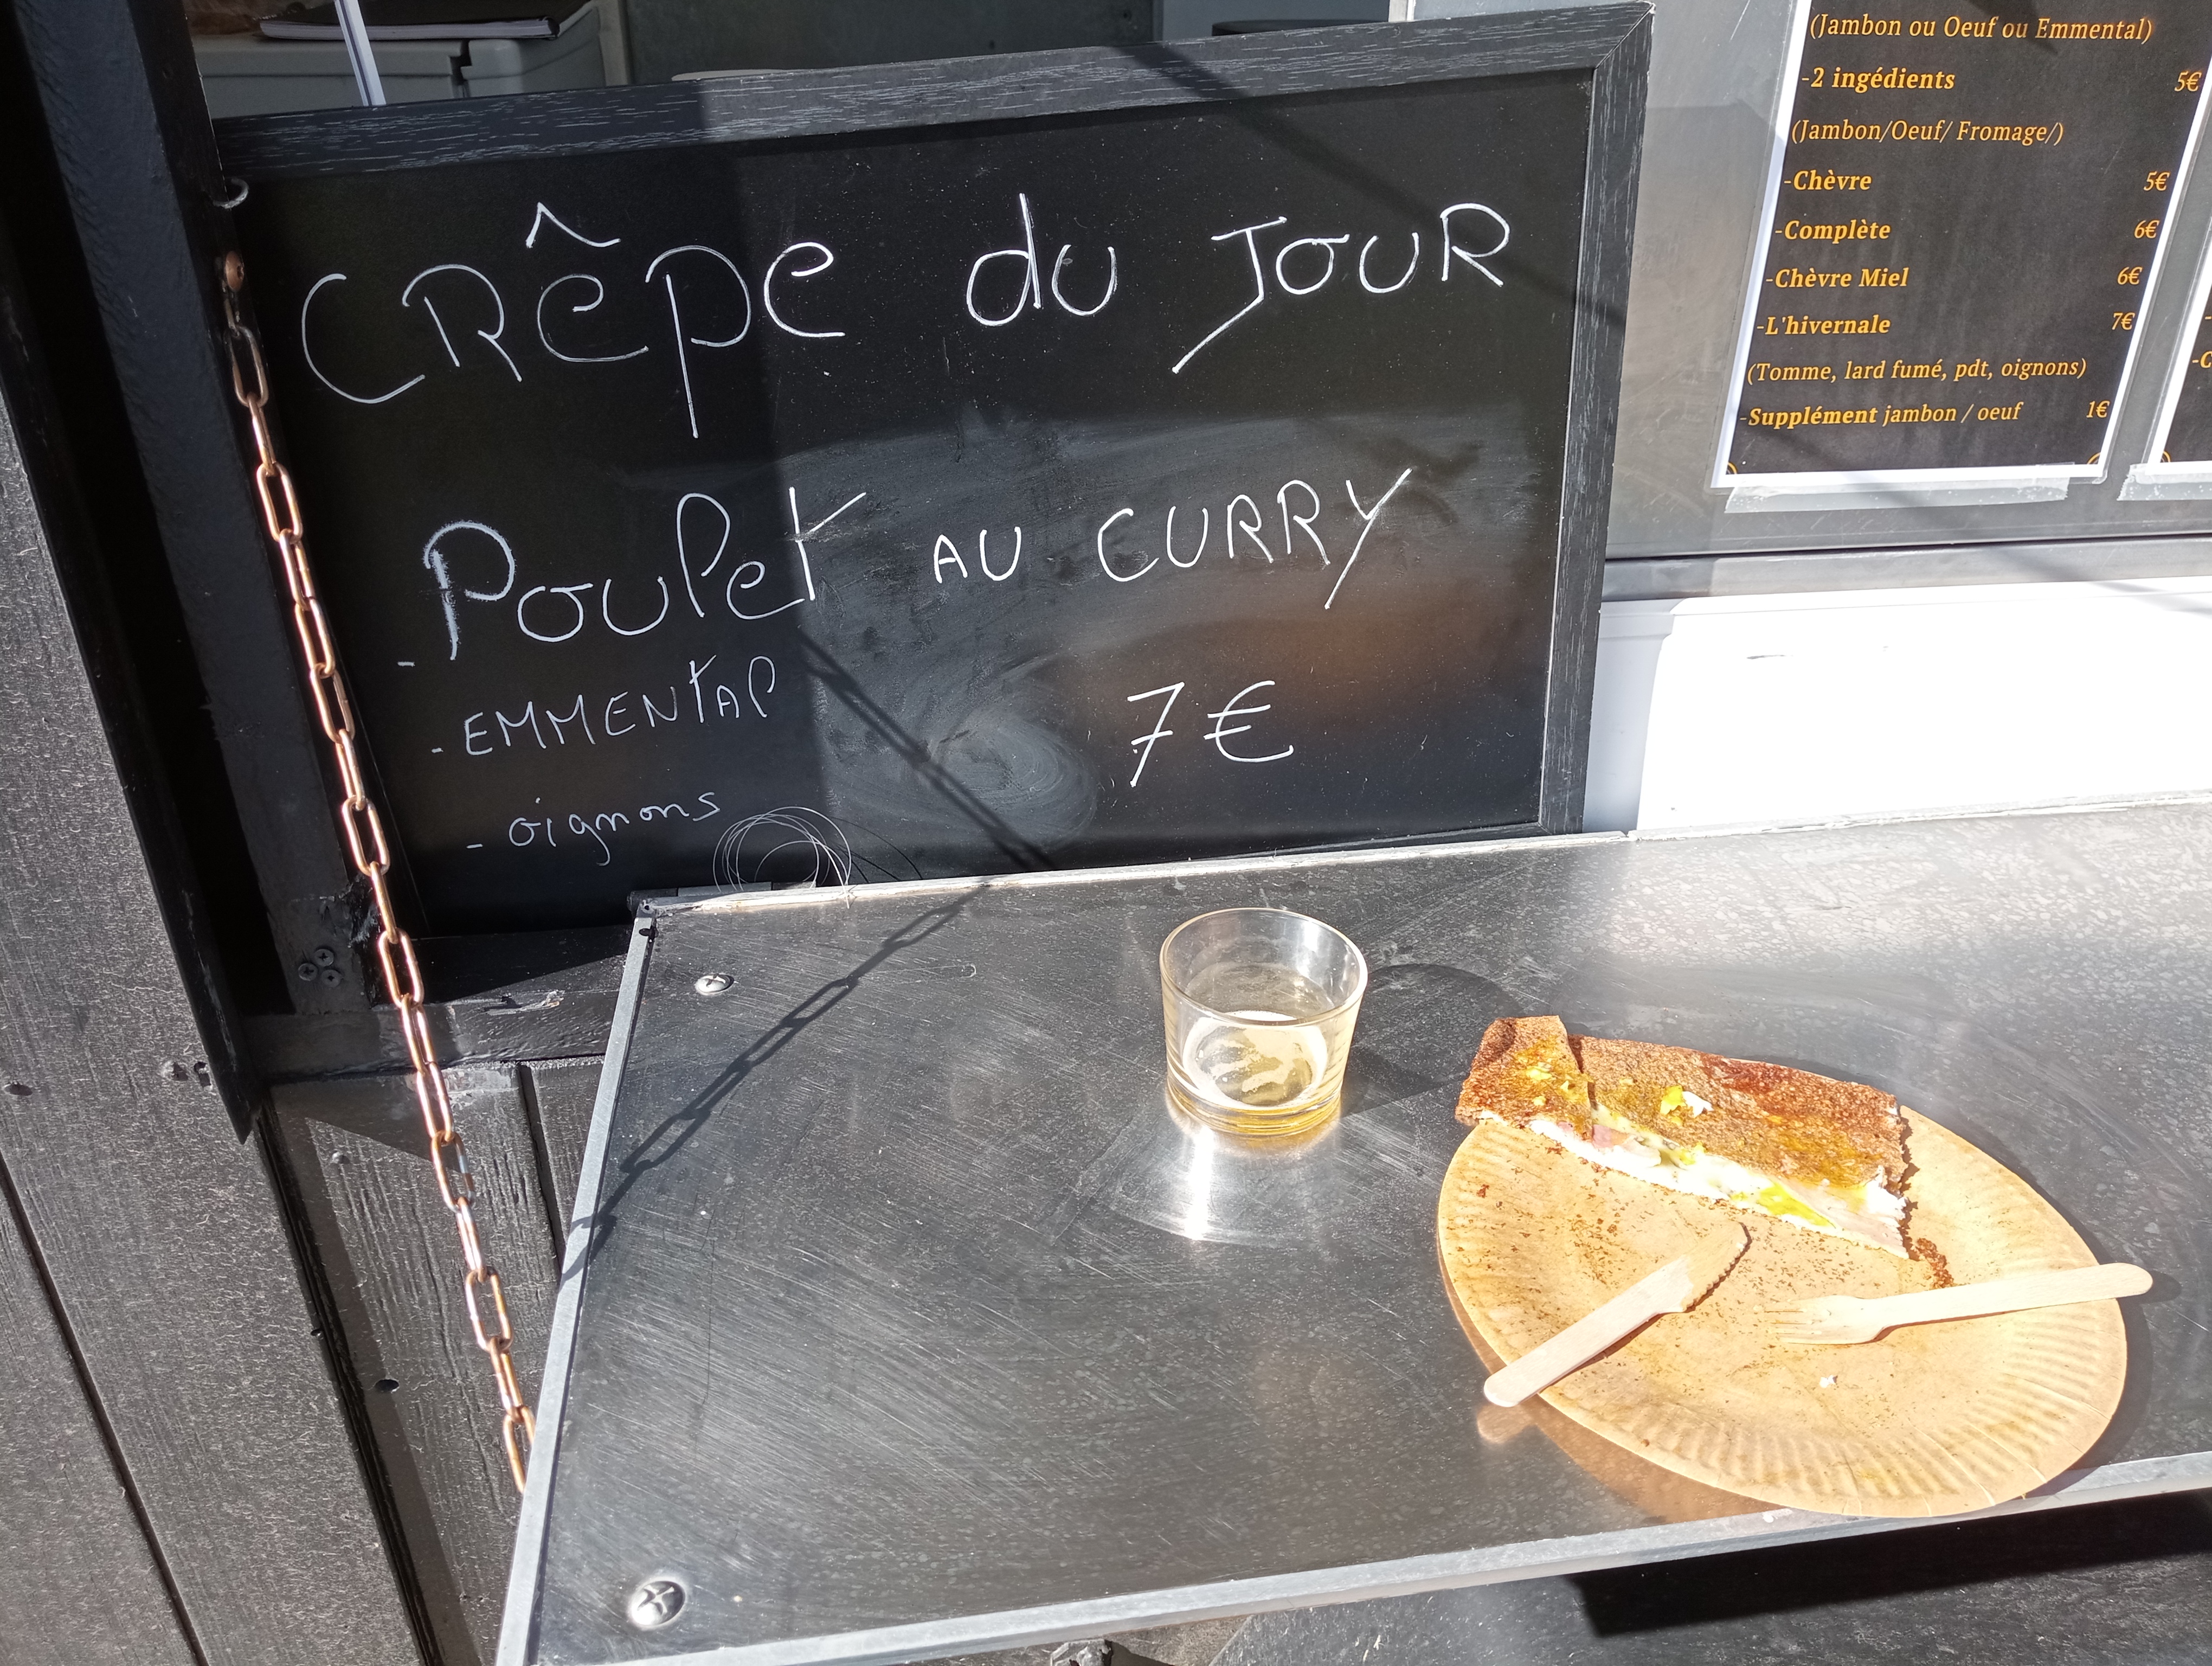 CRêpe du JOUR
- Poulet AU CURRY
- EMMENtAl
7€
- oignons
(Jambon ou Oeuf ou Emmental)
-2 ingédients 5€
(Jambon/Oeuf/ Fromage/)
-Chèvre 5€
-Complète 6€
-Chèvre Miel 6€
-L'hivernale 7€
(Tomme, lard fumé, pdt, oignons)
-Supplément jambon / oeuf 1€